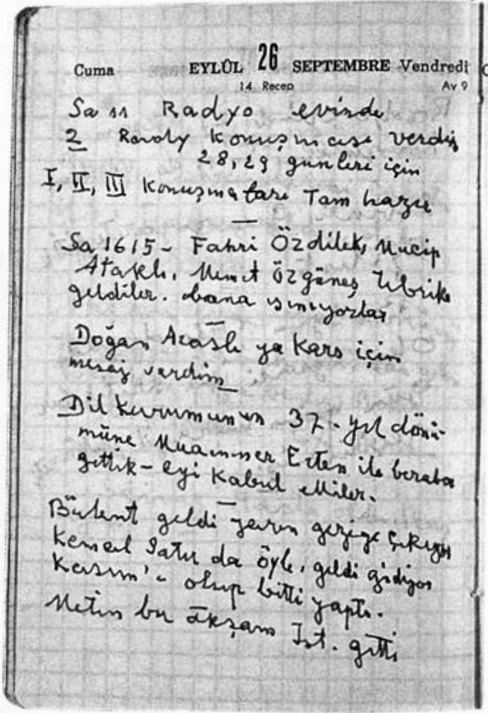 Cuma EYLÛL 26 SEPTEMBRE Vendredi
14 Recep Av 9
Sa 11 Radyo evinde
2 Konuşması verdim
28, 29 günleri için
I, II, III Konuşmaları Tam hazır
Sa 1615 - Fahri Özdilek, Mucip
Ataklı, Özgüneş Tebrike
geldiler. bana ısınıyorlar
Doğan Araslı ya Kars için
mesaj verdim
Dil kurumunun 37. yıl dönü-
müne Muammer Erten ile beraber
gittik - eyi Kabul ettiler.
Bülent geldi yarın geziye çıkıyor
Kemal Satır da öyle, geldi gidiyor
Kasım'a olup bitti yaptı.
Metin bu akşam İst. gitti